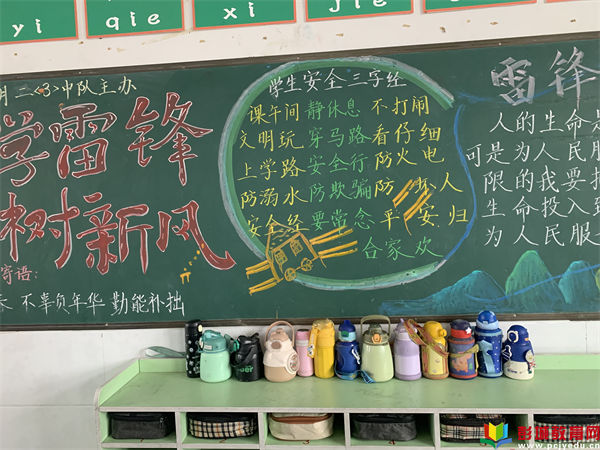 yi
qie
xi
jie
月二<3>中队主办
学雷锋
树新风
寄语:
春 不辜负年华 勤能补拙
学生安全三字经
课午间 静休息 不打闹
文明玩 穿马路 看仔细
上学路 安全行 防火电
防溺水 防欺骗 防坏人
安全经 要常念 平安归
合家欢
雷锋
人的生命是
可是为人民服
限的我要把
生命投入到
为人民服务
彭琪教育网
www.pcjyedu.cn